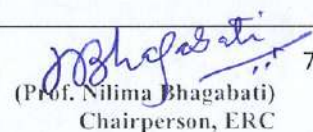 JBhagabati
7
(Prof. Nilima Bhagabati)
Chairperson, ERC